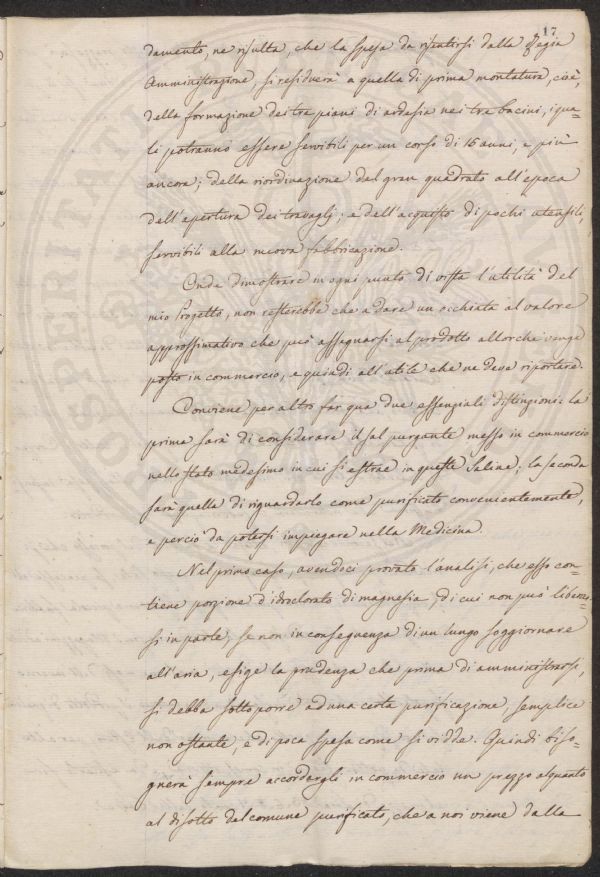 17
damento, ne risulta, che la spesa da risentirsi dalla Regia
Amministrazione, si residuerà a quella di prima montatura, cioè,
della formazione dei tre piani di ardesia nei tre bacini, i qua=
li potranno essere servibili per un corso di 15 anni, e più
ancora; della riordinazione del gran quadrato all'epoca
dell'apertura dei travagli; e dell'acquisto di pochi utensili,
servibili alla nuova fabbricazione.
Onde dimostrare in ogni punto di vista l'utilità del
mio Progetto, non resterebbe che a dare un occhiata al valore
approssimativo che può assegnarsi al prodotto allorchè venga
posto in commercio, e quindi all'utile che ne deve riportare.
Conviene per altro far qua due essenziali distinzioni: la
prima sarà di considerare il sal purgante messo in commercio
nello stato medesimo in cui si estrae in queste Saline; la seconda
sarà quella di riguardarlo come purificato convenientemente,
e perciò da potersi impiegare nella Medicina.
Nel primo caso, avendoci provato l'analisi, che esso con=
tiene porzione d'idroclorato di magnesia, di cui non può liberar=
si in parte, se non in conseguenza di un lungo soggiornare
all'aria, esige la prudenza che prima di amministrarsi,
si debba sottoporre ad una certa purificazione, semplice
non ostante, e di poca spesa come si vidde. Quindi biso=
gnerà sempre accordargli in commercio un prezzo alquanto
al disotto del comune purificato, che a noi viene dalla